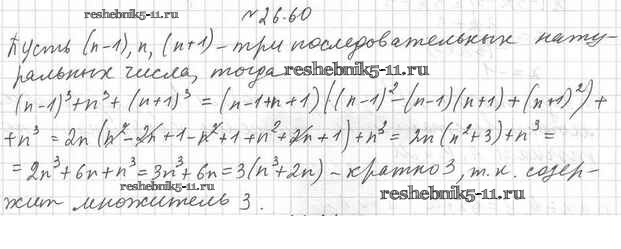 №26.60
reshebnik5-11.ru
Пусть (n-1), n, (n+1) - три последовательных нату-
ральных числа, тогда
reshebnik5-11.ru
(n-1)³+n³+(n+1)³ = (n-1+n+1)((n-1)²-(n-1)(n+1)+(n+1)²)+
+n³ = 2n(n²-2n+1-n²+1+n²+2n+1)+n³ = 2n(n²+3)+n³ =
= 2n³+6n+n³ = 3n³+6n = 3(n³+2n) - кратно 3, т.к. содер-
reshebnik5-11.ru
жит множитель 3.
reshebnik5-11.ru